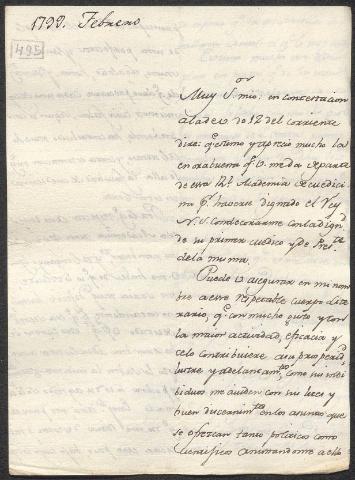 1799. Febrero
495
or
Muy S. mio: en contextacion
a la de v. de 12 del corriente
dire q.e estimo y aprecio mucho la
enorabuena q.e v. me da de parte
de essa R.l Academia de medici
na p.r haverse dignado el Rey
N. S. condecorarme con la dign.d
de su primer medico y de Pres.te
de la misma.
Puedo v. asegurar en mi nom
bre a esse respetable cuerpo lite
rario, q.e con mucho gusto y con
la maior actividad, eficacia y
celo contribuire a su properid.d
lustre y adelantam.to, como sus indi
biduos me aiuden con sus luces y
buen discernim.to en los asuntos que
se ofrezcan tanto politicos como
cientificos animandome a ello